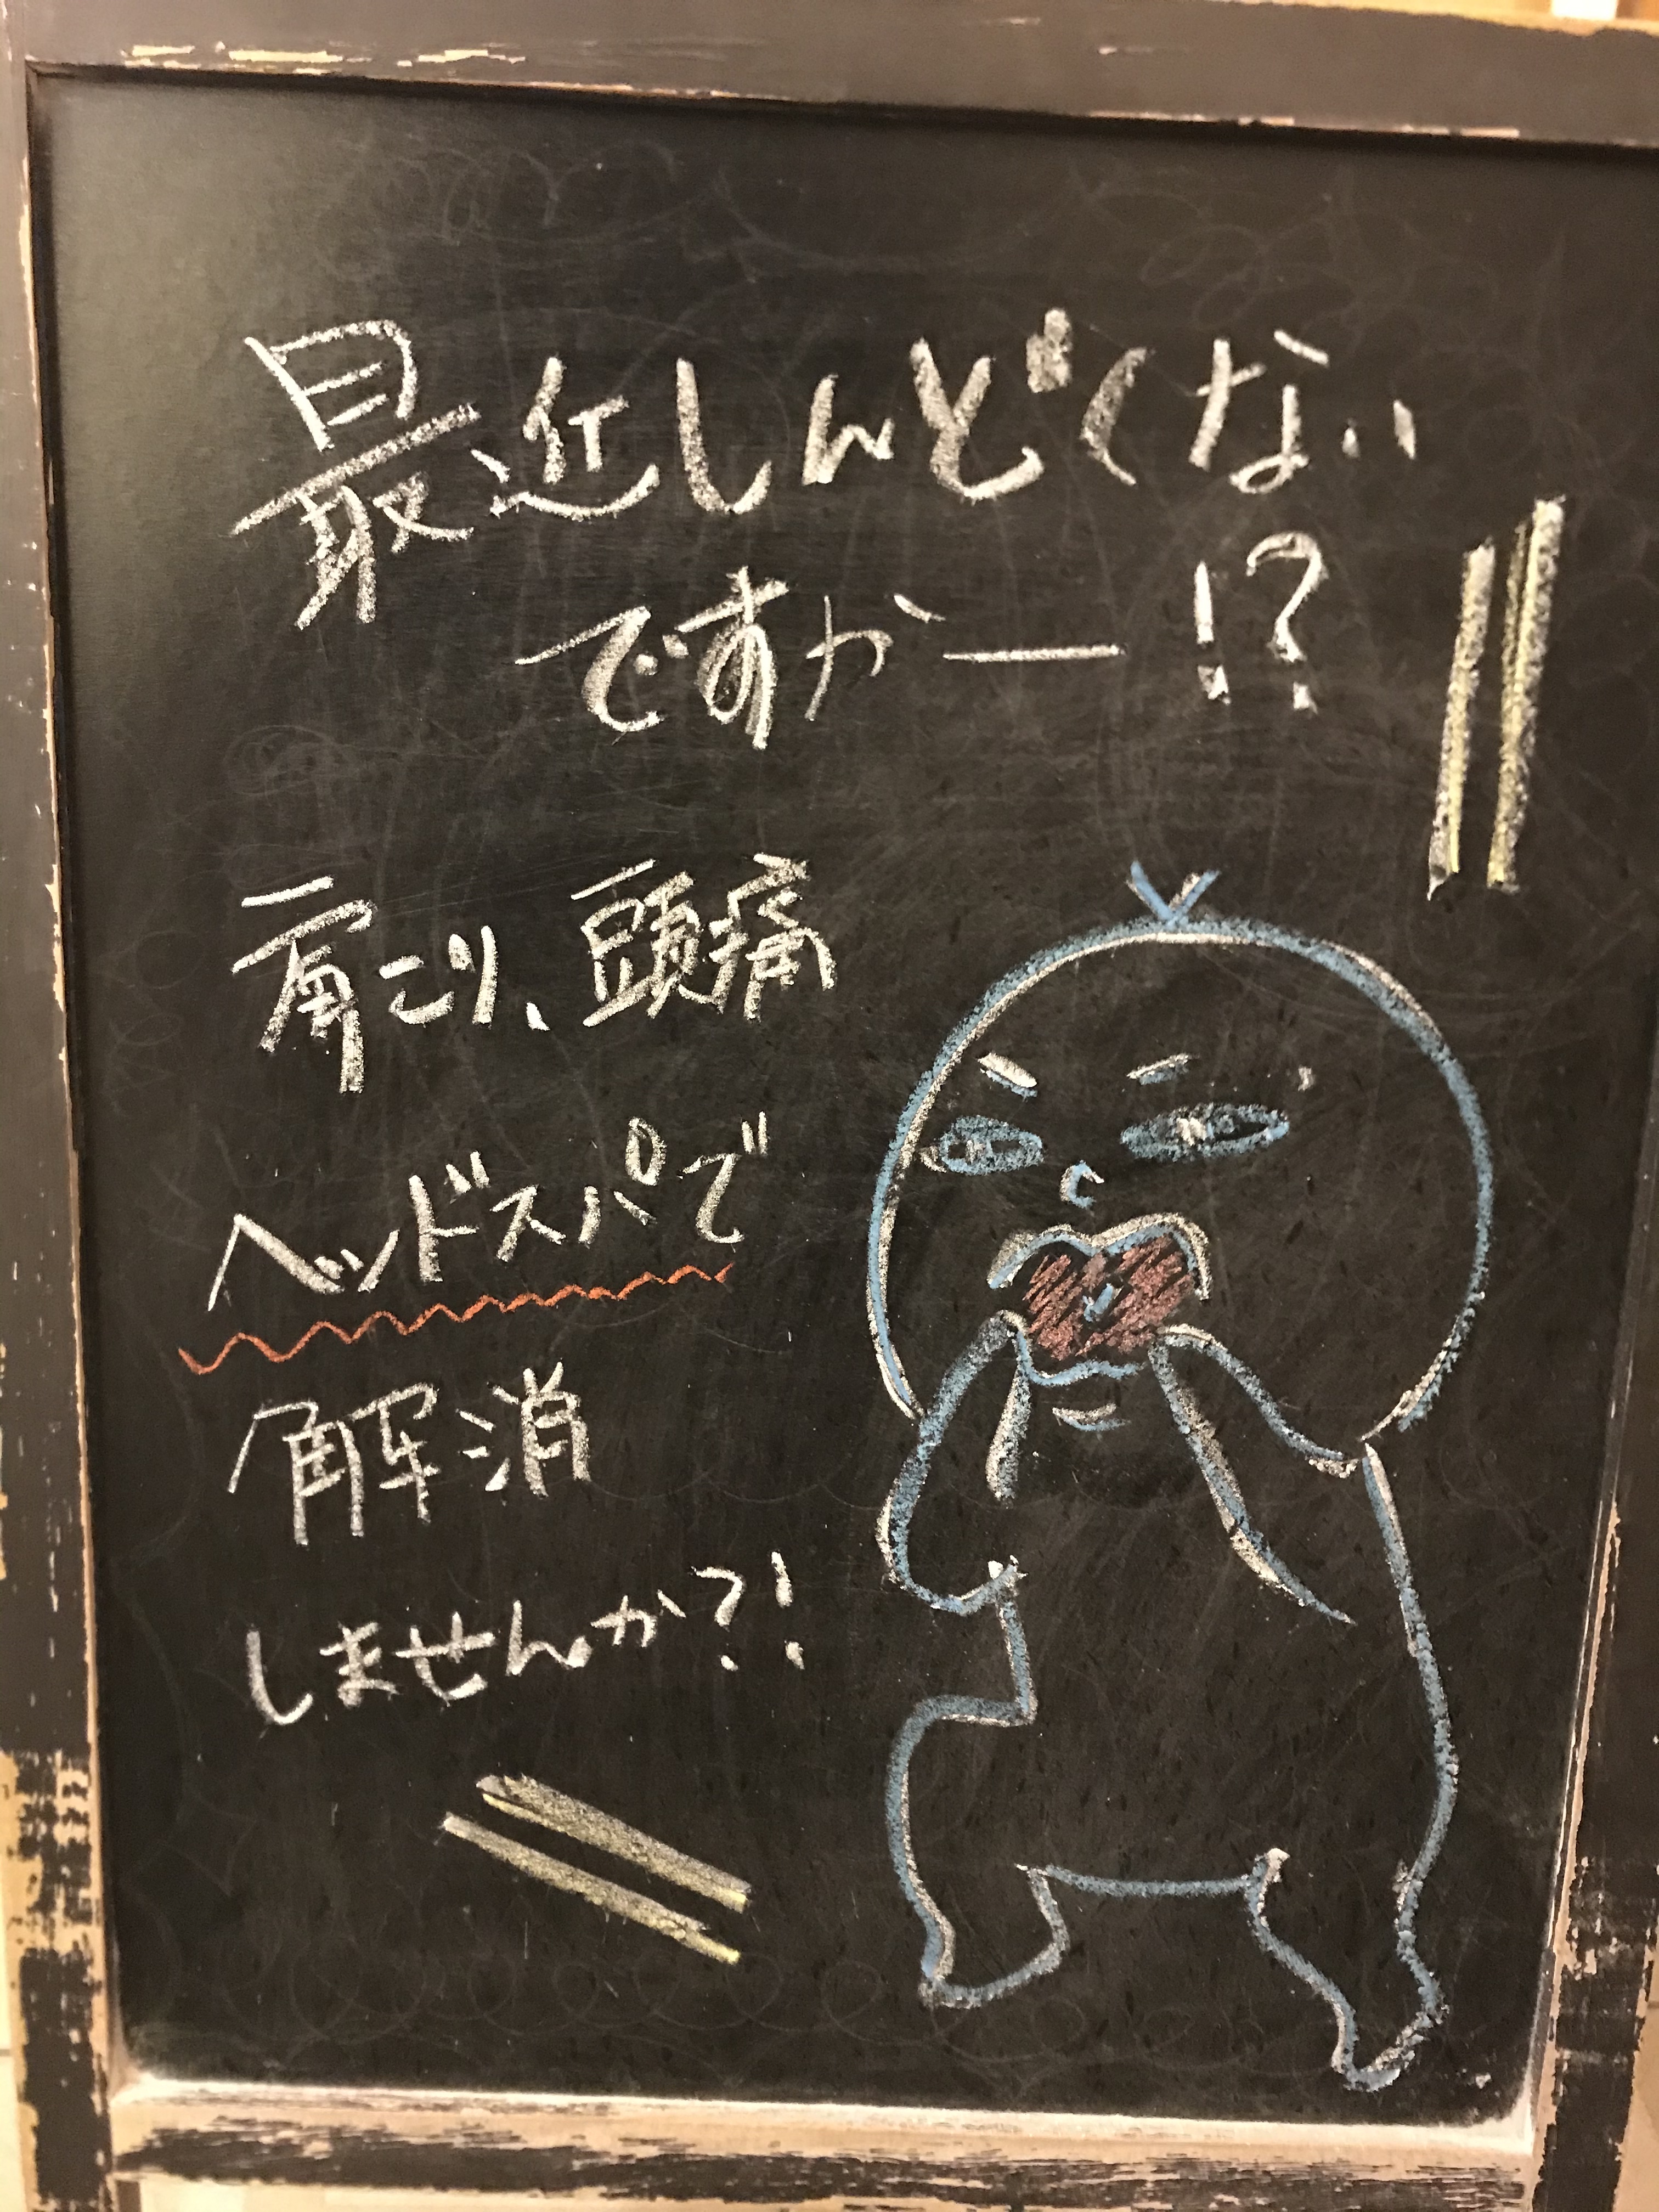 最近しんどくない
ですかー!?
肩こり、頭痛
ヘッドスパで
解消
しませんか?!